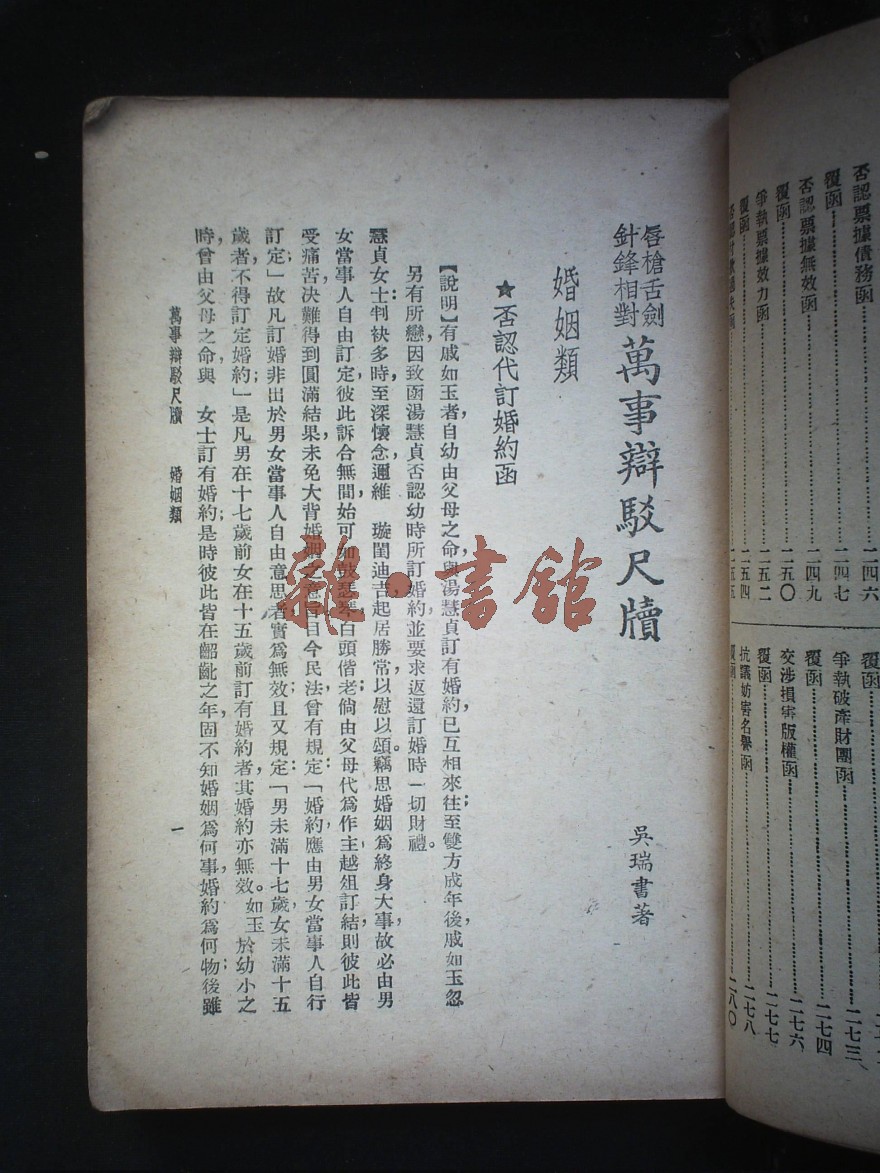 否認票據債務函
覆函……二四六
否認票據無效函……二四七
覆函……二四九
爭執票據效力函……二五〇
覆函……二五二
二五四
覆函
爭執破產財團函……二七三
覆函……二七四
交涉損害版權函……二七六
覆函……二七七
抗議妨害名譽函……二七八
覆函……二八〇
唇槍舌劍
針鋒相對
萬事辯駁尺牘
吳瑞書著
婚姻類
★否認代訂婚約函
【說明】有戚如玉者，自幼由父母之命與湯慧貞訂有婚約已互相來往；至雙方成年後戚如玉忽
另有所戀因致函湯慧貞否認幼時所訂婚約並要求返還訂婚時一切財禮。
慧貞女士：判袂多時，至深懷念邇維　璇閨迪吉起居勝常以慰以頌。竊思婚姻為終身大事故必由男
女當事人自由訂定彼此訴合無間始可如鼓瑟琴白頭偕老倘由父母代為作主越俎訂結則彼此皆
受痛苦決難得到圓滿結果未免大背婚姻之意旨目今民法曾有規定：「婚約應由男女當事人自行
訂定」故凡訂婚非出於男女當事人自由意思者實為無效且又規定：「男未滿十七歲女未滿十五
歲者，不得訂定婚約；」是凡男在十七歲前女在十五歲前訂有婚約者，其婚約亦無效。如玉於幼小之
時，曾由父母之命與　女士訂有婚約；是時彼此皆在齠齔之年，固不知婚姻為何事婚約為何物；後雖
萬事辯駁尺牘　婚姻類
一
雜·書館